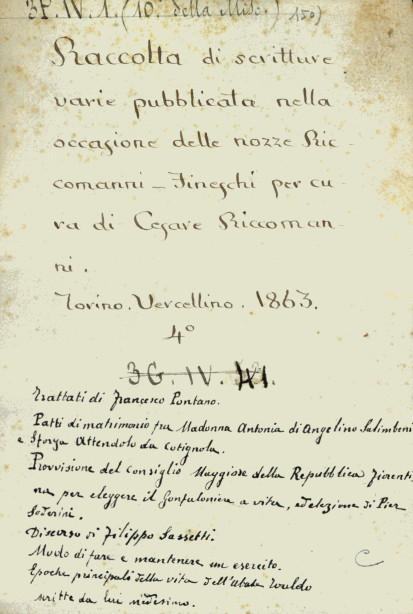 3F. IV. 1. (10. della Misc.) 150)
Raccolta di scritture
varie pubblicata nella
occasione delle nozze Ric-
comanni - Fineschi per cu-
ra di Cesare Riccoman-
ni.
Torino. Vercellino. 1863.
4º
3G. IV. 41.
Trattati di Francesco Pontano.
Patti di matrimonio fra Madonna Antonia di Angelino Salimbeni
e Sforza Attendolo da Cotignola.
Provvisione del Consiglio Maggiore della Repubblica Fiorenti
na per eleggere il Gonfaloniere a vita, ed elezione di Pier
Soderini.
Discorso di Filippo Sassetti.
Modo di fare e mantenere un esercito.
Epoche principali della vita dell'Abate
scritte da lui medesimo.
C